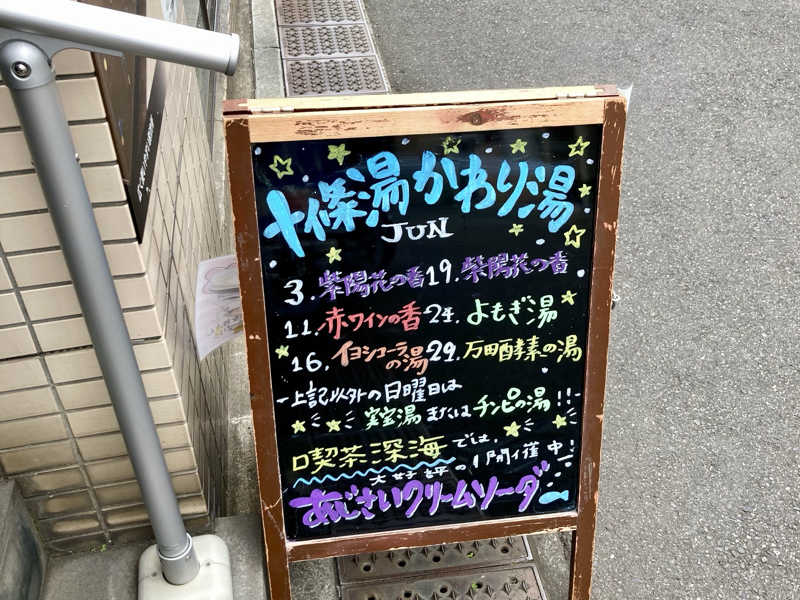 十條湯かわり湯
JUN
3.紫陽花の香 19.紫陽花の香
11.赤ワインの香 24.よもぎ湯
16.イヨシコーラの湯 29.万田酵素の湯
上記以外の日曜日は
宝寿湯またはチンピの湯!!
喫茶深海では、
大好評の
開催中!
あじさいクリームソーダ